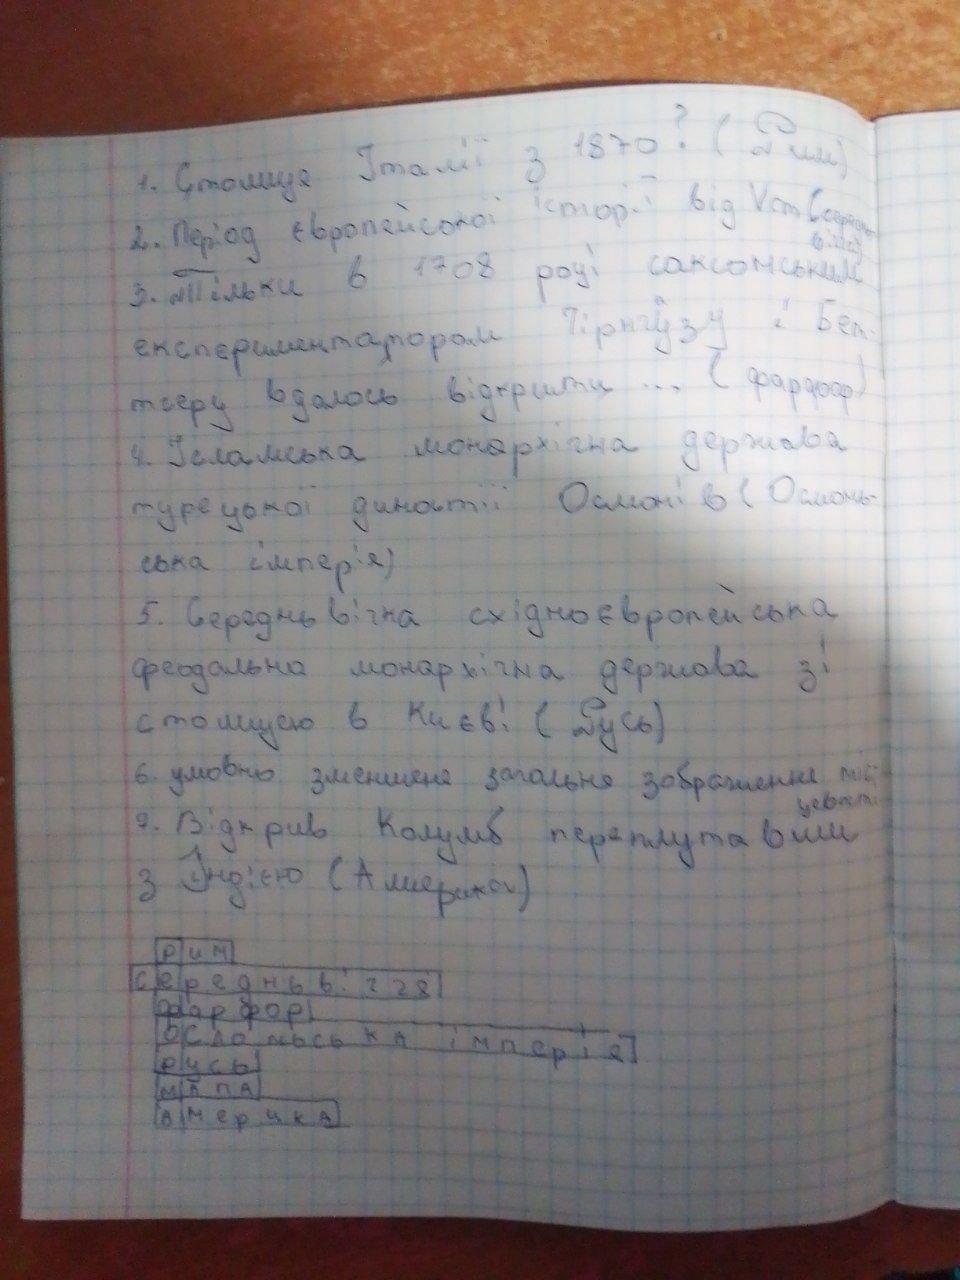 1. Столиця Італії з 1870? (Рим)
2. Період європейської історії від V ст (середнь
віччя
3. Тільки в 1708 році саксонським
експериментатором Чірнгаузу і Бет-
тгеру вдалось відкрити ... (фарфор)
4. Ісламська монархічна держава
турецької династії Османів (Османь-
ська імперія)
5. Середньвічна східноєвропейська
феодальна монархічна держава зі
столицею в Києві (Русь)
6. умовно зменшене загальне зображення міс
цевості
7. Відкрив Колумб переплутавши
з Індією (Америка)
рим
середньвіччя
фарфор
Османьська імперія
русь
мапа
америка